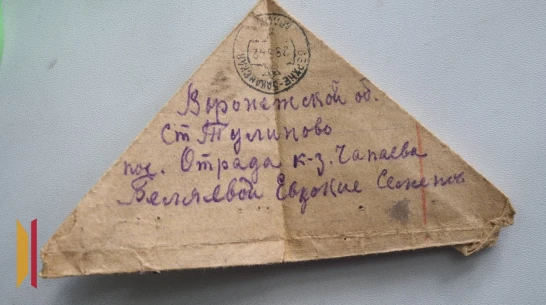 Воронежской об.
Ст Тулиново
пос. Отрада к-з. Чапаева
Беляевой Евдокие Семенов